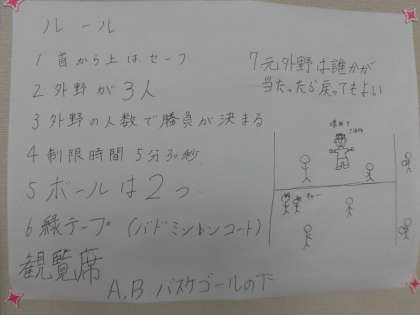 ルール
1 首から上はセーフ
2 外野が3人
3 外野の人数で勝負が決まる
4 制限時間 5分30秒
5 ボールは2つ
6 緑テープ (バドミントンコート)
7 元外野は誰かが
当たったら戻ってもよい
観覧席
A.B バスケゴールの下